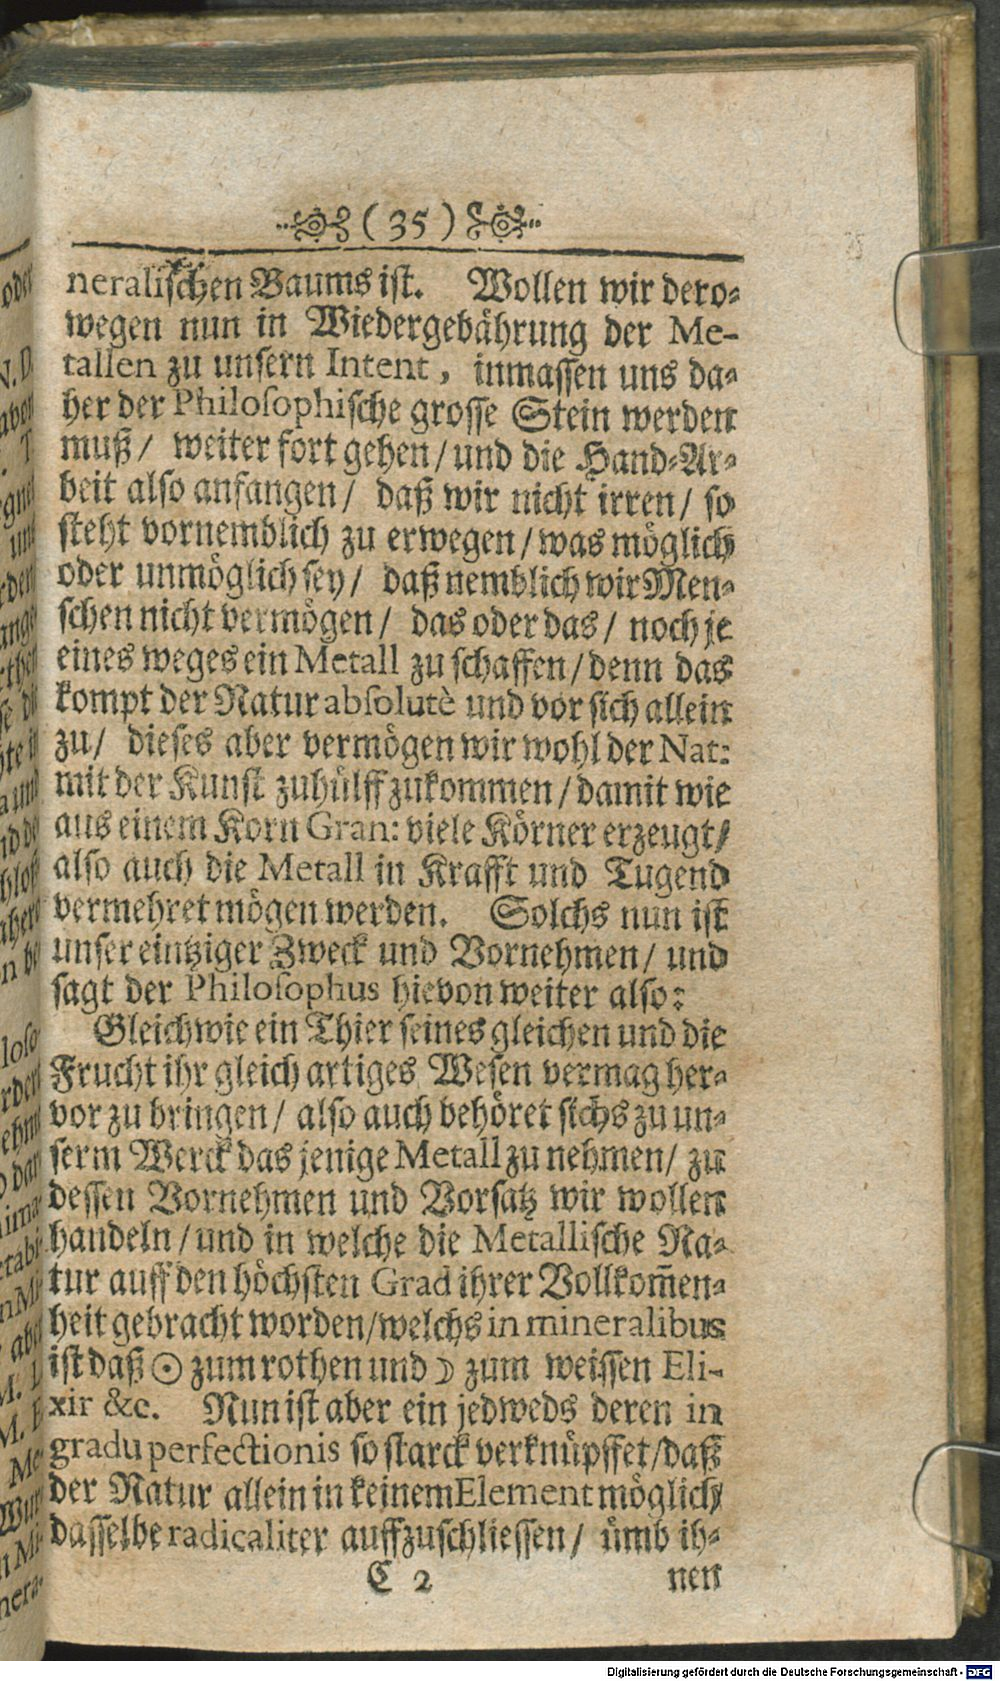 ( 35 )
neralischen Baums ist. Wollen wir dero-
wegen nun in Wiedergebährung der Me-
tallen zu unsern Intent, inmassen uns da-
her der Philosophische grosse Stein werden
muß/ weiter fort gehen/ und die Hand-Ar-
beit also anfangen/ daß wir nicht irren/ so
steht vornemblich zu erwegen/ was möglich
oder unmöglich sey/ daß nemblich wir Men-
schen nicht vermögen/ das oder das/ noch je
eines weges ein Metall zu schaffen/ denn das
kompt der Natur absolutè und vor sich allein
zu/ dieses aber vermögen wir wohl der Nat:
mit der Kunst zuhülff zukommen/ damit wie
aus einem Korn Gran: viele Körner erzeugt/
also auch die Metall in Krafft und Tugend
vermehret mögen werden. Solchs nun ist
unser eintziger Zweck und Vornehmen/ und
sagt der Philosophus hievon weiter also:
Gleichwie ein Thier seines gleichen und die
Frucht ihr gleich artiges Wesen vermag her-
vor zu bringen/ also auch behöret sichs zu un-
serm Werck das jenige Metall zu nehmen/ zu
dessen Vornehmen und Vorsatz wir wollen
handeln/ und in welche die Metallische Na-
tur auff den höchsten Grad ihrer Vollkom̄en-
heit gebracht worden/ welchs in mineralibus
ist daß ☉ zum rothen und ☽ zum weissen Eli-
xir &c. Nun ist aber ein jedweds deren in
gradu perfectionis so starck verknüpffet/ daß
der Natur allein in keinem Element möglich
dasselbe radicaliter auffzuschliessen/ ümb ih-
C 2 nen
Digitalisierung gefördert durch die Deutsche Forschungsgemeinschaft - DFG